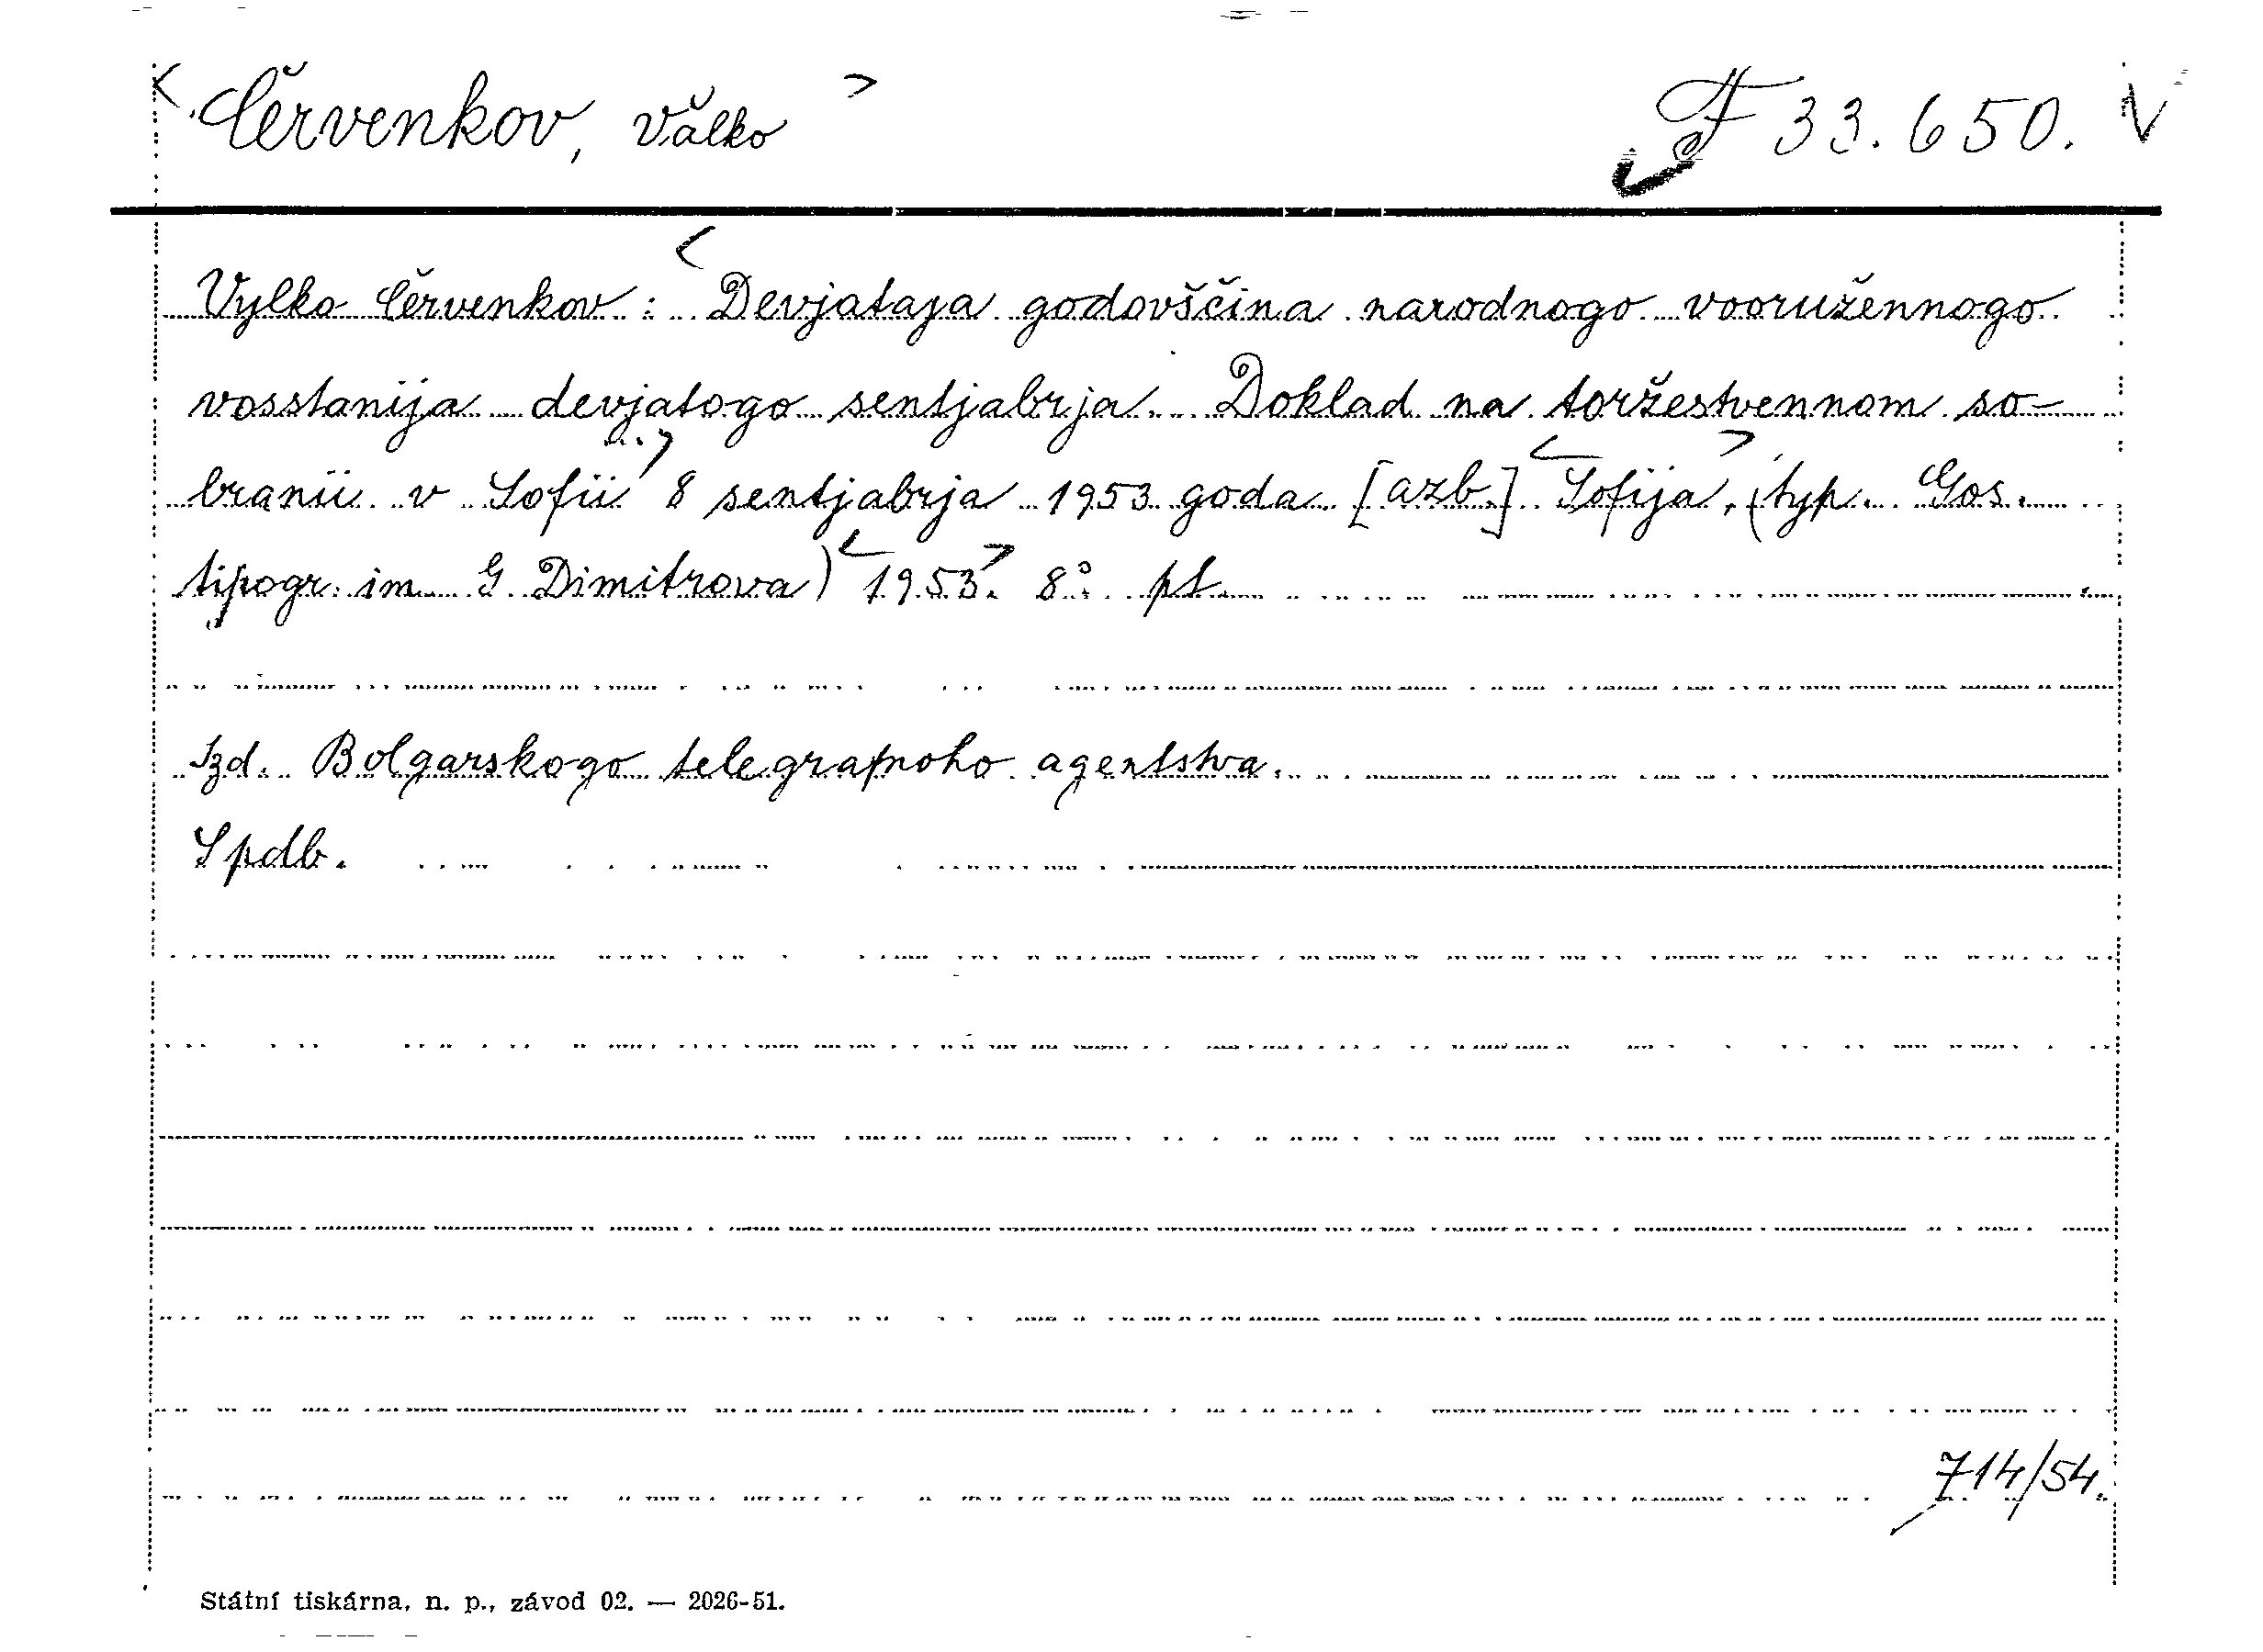 <Červenkov, Vǎlko> F 33.650. V
Vylko Červenkov: <Devjataja godovščina narodnogo vooružennogo
vosstanija devjatogo sentjabrja. Doklad na toržestvennom so-
branii v Sofii> 8 sentjabrja 1953 goda [azb.] <Sofija>, (typ. Gos.
tipogr. im. G. Dimitrova) <1953>. 8° pt.
Izd. Bolgarskogo telegrafnoho agentstva.
Spdb.
714/54.
Státní tiskárna, n. p., závod 02. — 2026-51.